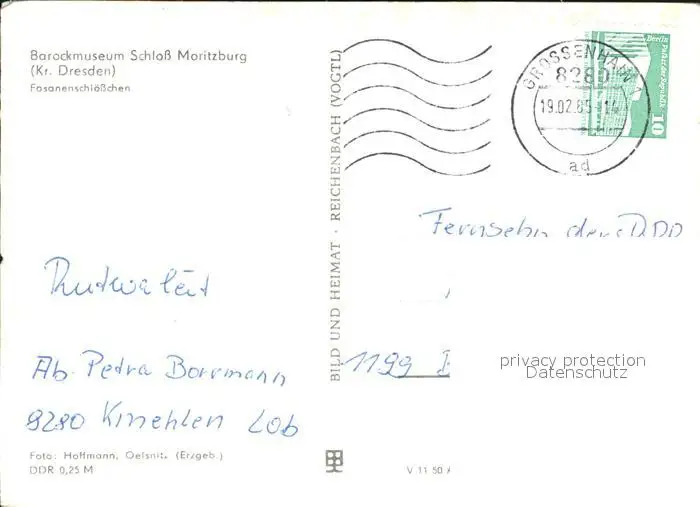 Barockmuseum Schloß Moritzburg
(Kr. Dresden)
Fasanenschlößchen
GROSSENHAIN 1
8280
19.02.85
ad
Berlin Palast der Republik
10
BILD UND HEIMAT · REICHENBACH (VOGTL)
Fernsehn der DDD
1199
privacy protection
Datenschutz
Ab. Petra Borrmann
8280
Foto: Hoffmann, Oelsnitz (Erzgeb.)
DDR 0,25 M
V 11 50